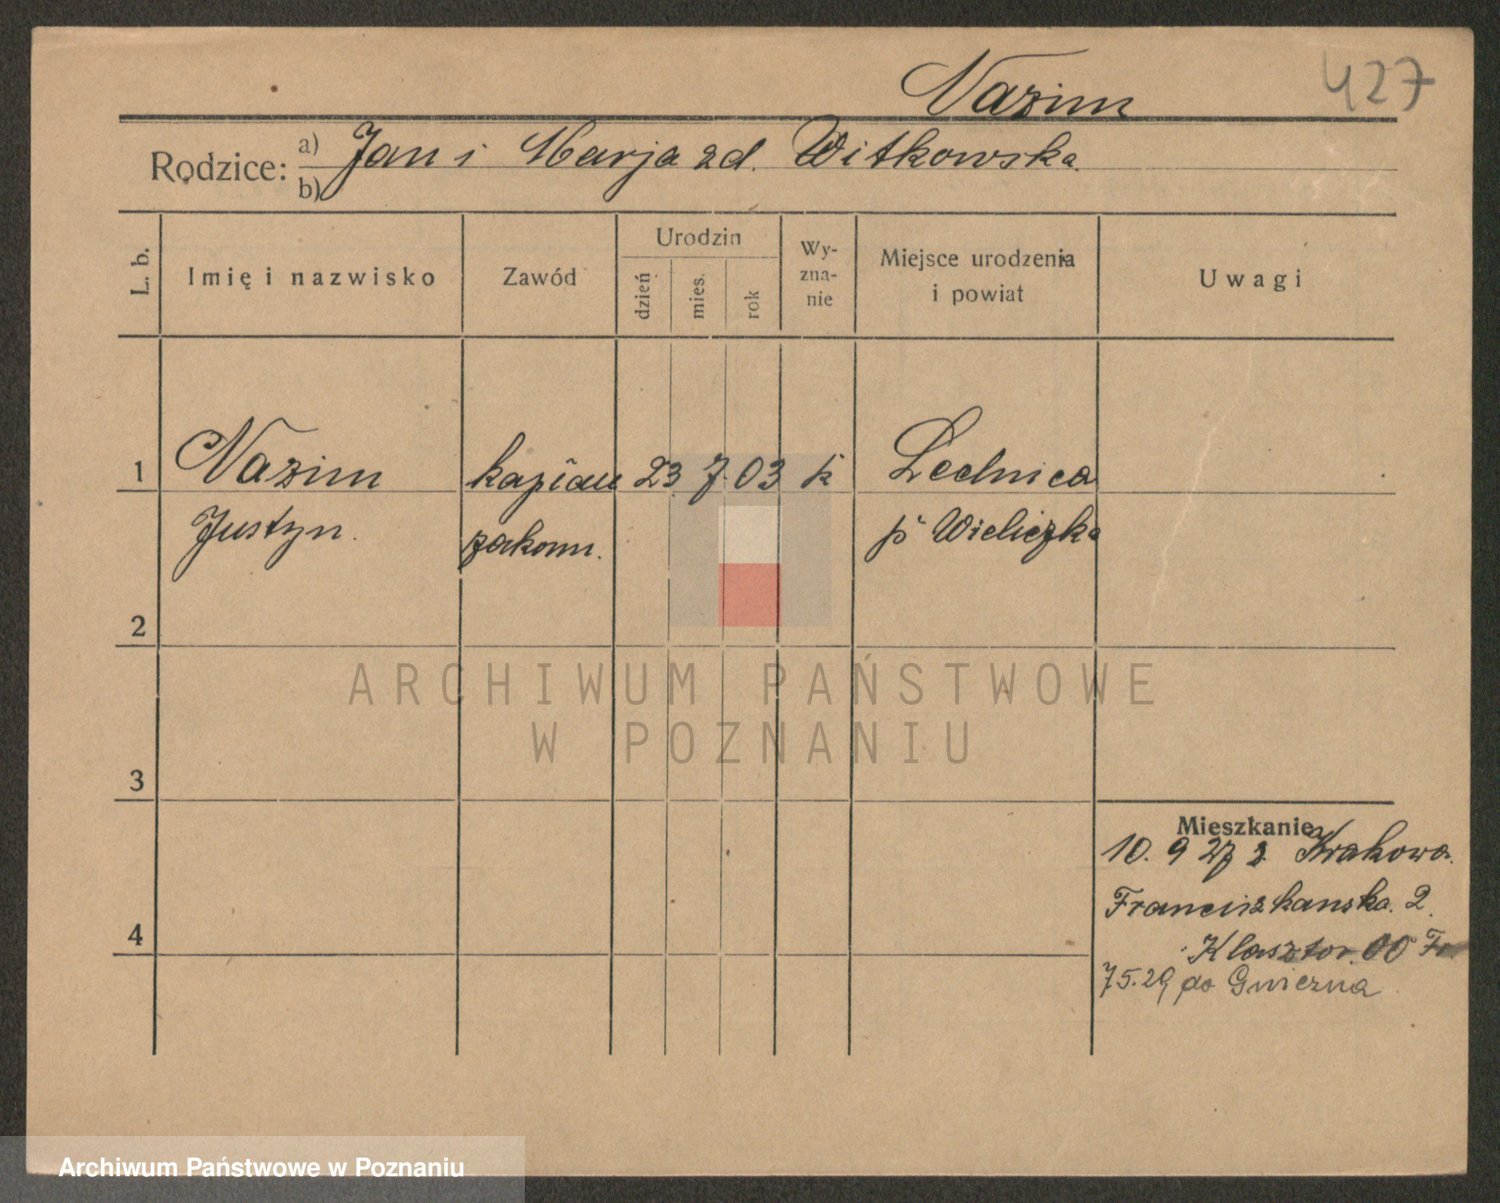 Nazim 427
Rodzice: a) Jan i Marja zd. Witkowska
b)
L. b. Imię i nazwisko Zawód Urodzin dzień mies. rok Wy-zna-nie Miejsce urodzenia i powiat Uwagi
1 Nazim kapłan 23 7 03 k Lednica
Justyn. zakonn. p. Wieliczka
2
ARCHIWUM PAŃSTWOWE
W POZNANIU
3
Mieszkanie
10. 9 27 z Krakowa
Franciszkanska. 2.
4 Klasztor. OO Fr
7 5. 29 do Gniezna
Archiwum Państwowe w Poznaniu